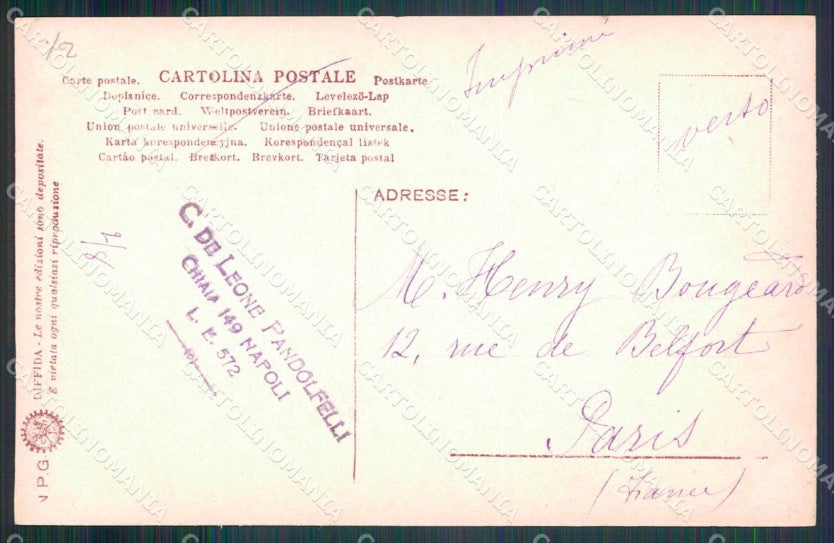 12
Imprimé
Carte postale. CARTOLINA POSTALE Postkarte
Dopisnice. Correspondenzkarte. Levelező-Lap
Post card. Weltpostverein. Briefkaart.
Union postale universelle. Unione postale universale.
Karta korespondencyjna. Korespondenčal listek
Cartão postal. Brefkort. Brevkort. Tarjeta postal
verso
ADRESSE:
M. Henry Bougeard
12, rue de Belfort
Paris
(France)
C. DE LEONE PANDOLFELLI
CHIAIA 149 NAPOLI
L. E. 572
DIFFIDA - Le nostre edizioni sono depositate.
È vietata ogni qualsiasi riproduzione
V.P.G.
CARTOLINOMANIA